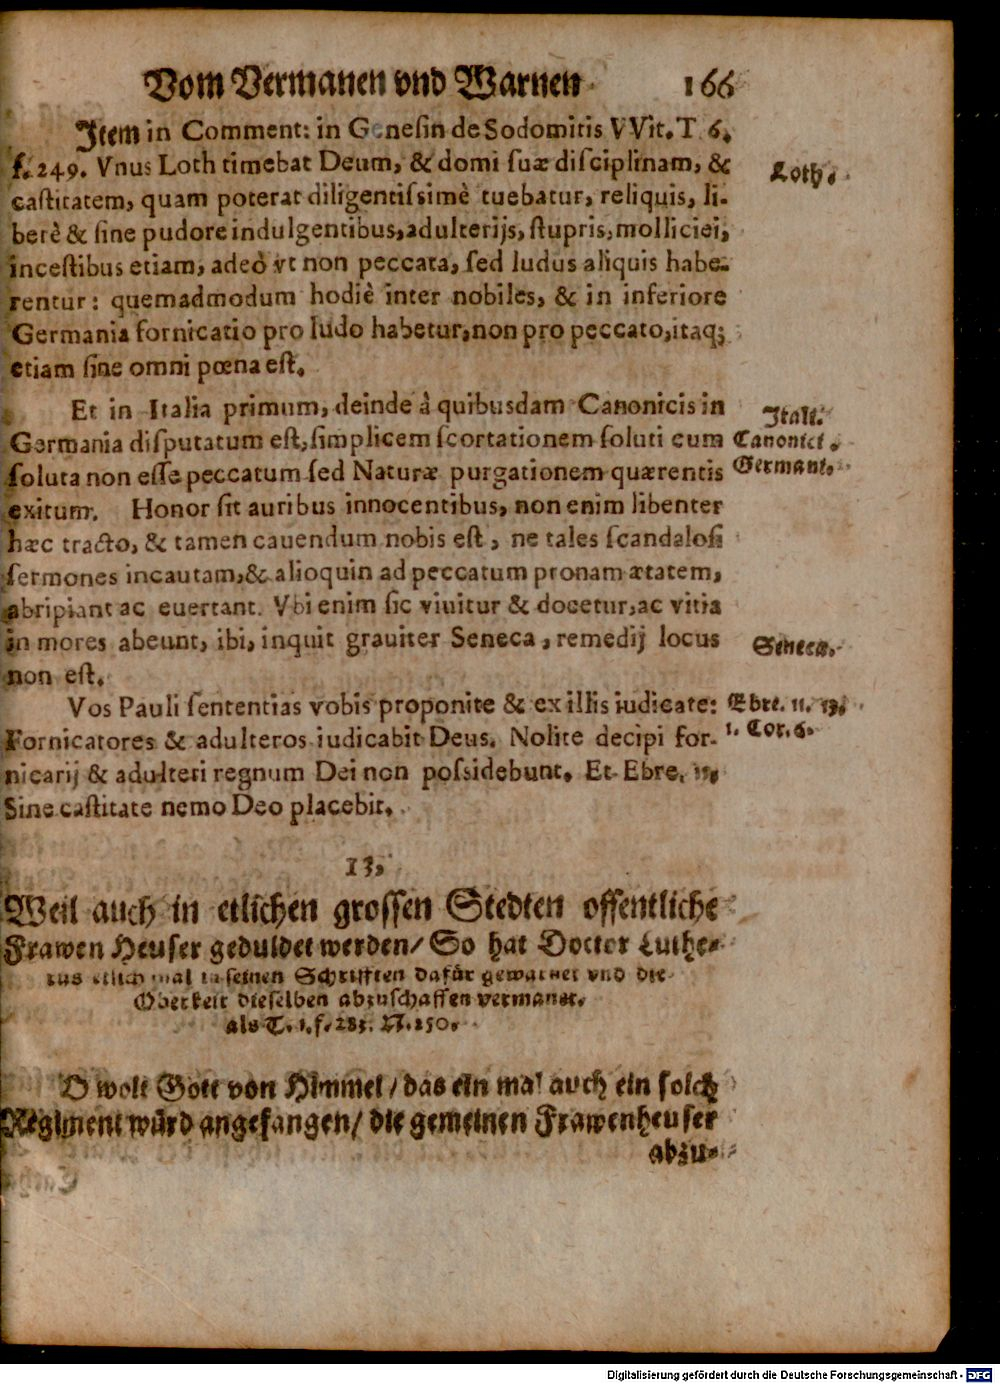 Vom Vermanen vnd Warnen 166
Item in Comment: in Genesin de Sodomitis VVit. T 6.
f. 249. Vnus Loth timebat Deum, & domi suæ disciplinam, &
Loth.
castitatem, quam poterat diligentissimè tuebatur, reliquis, li-
berè & sine pudore indulgentibus, adulterijs, stupris, molliciei,
incestibus etiam, adeò vt non peccata, sed ludus aliquis habe-
rentur: quemadmodum hodiè inter nobiles, & in inferiore
Germania fornicatio pro ludo habetur, non pro peccato, itaq;
etiam sine omni pœna est.
Et in Italia primum, deinde à quibusdam Canonicis in
Itali.
Germania disputatum est, simplicem scortationem soluti cum
Canonici.
soluta non esse peccatum sed Naturæ purgationem quærentis
Germani.
exitum. Honor sit auribus innocentibus, non enim libenter
hæc tracto, & tamen cauendum nobis est, ne tales scandalosi
sermones incautam, & alioquin ad peccatum pronam ætatem,
abripiant ac euertant. Vbi enim sic viuitur & docetur, ac vitia
in mores abeunt, ibi, inquit grauiter Seneca, remedij locus
Seneca.
non est.
Vos Pauli sententias vobis proponite & ex illis iudicate:
Ebre. 11. 13.
Fornicatores & adulteros iudicabit Deus. Nolite decipi for-
1. Cor. 6.
nicarij & adulteri regnum Dei non possidebunt. Et Ebre.
Sine castitate nemo Deo placebit.
13.
Weil auch in etlichen grossen Stedten offentliche
Frawen Heuser geduldet werden/ So hat Doctor Luthe-
rus etlich mal in seinen Schrifften dafür gewarnet vnd die
Oberkeit dieselben abzuschaffen vermanet.
als T. 1. f. 285. N. 250.
O wolt Gott von Himmel/ das ein mal auch ein solch
Regiment würd angefangen/ die gemeinen Frawenheuser
abzu-
Digitalisierung gefördert durch die Deutsche Forschungsgemeinschaft - DFG